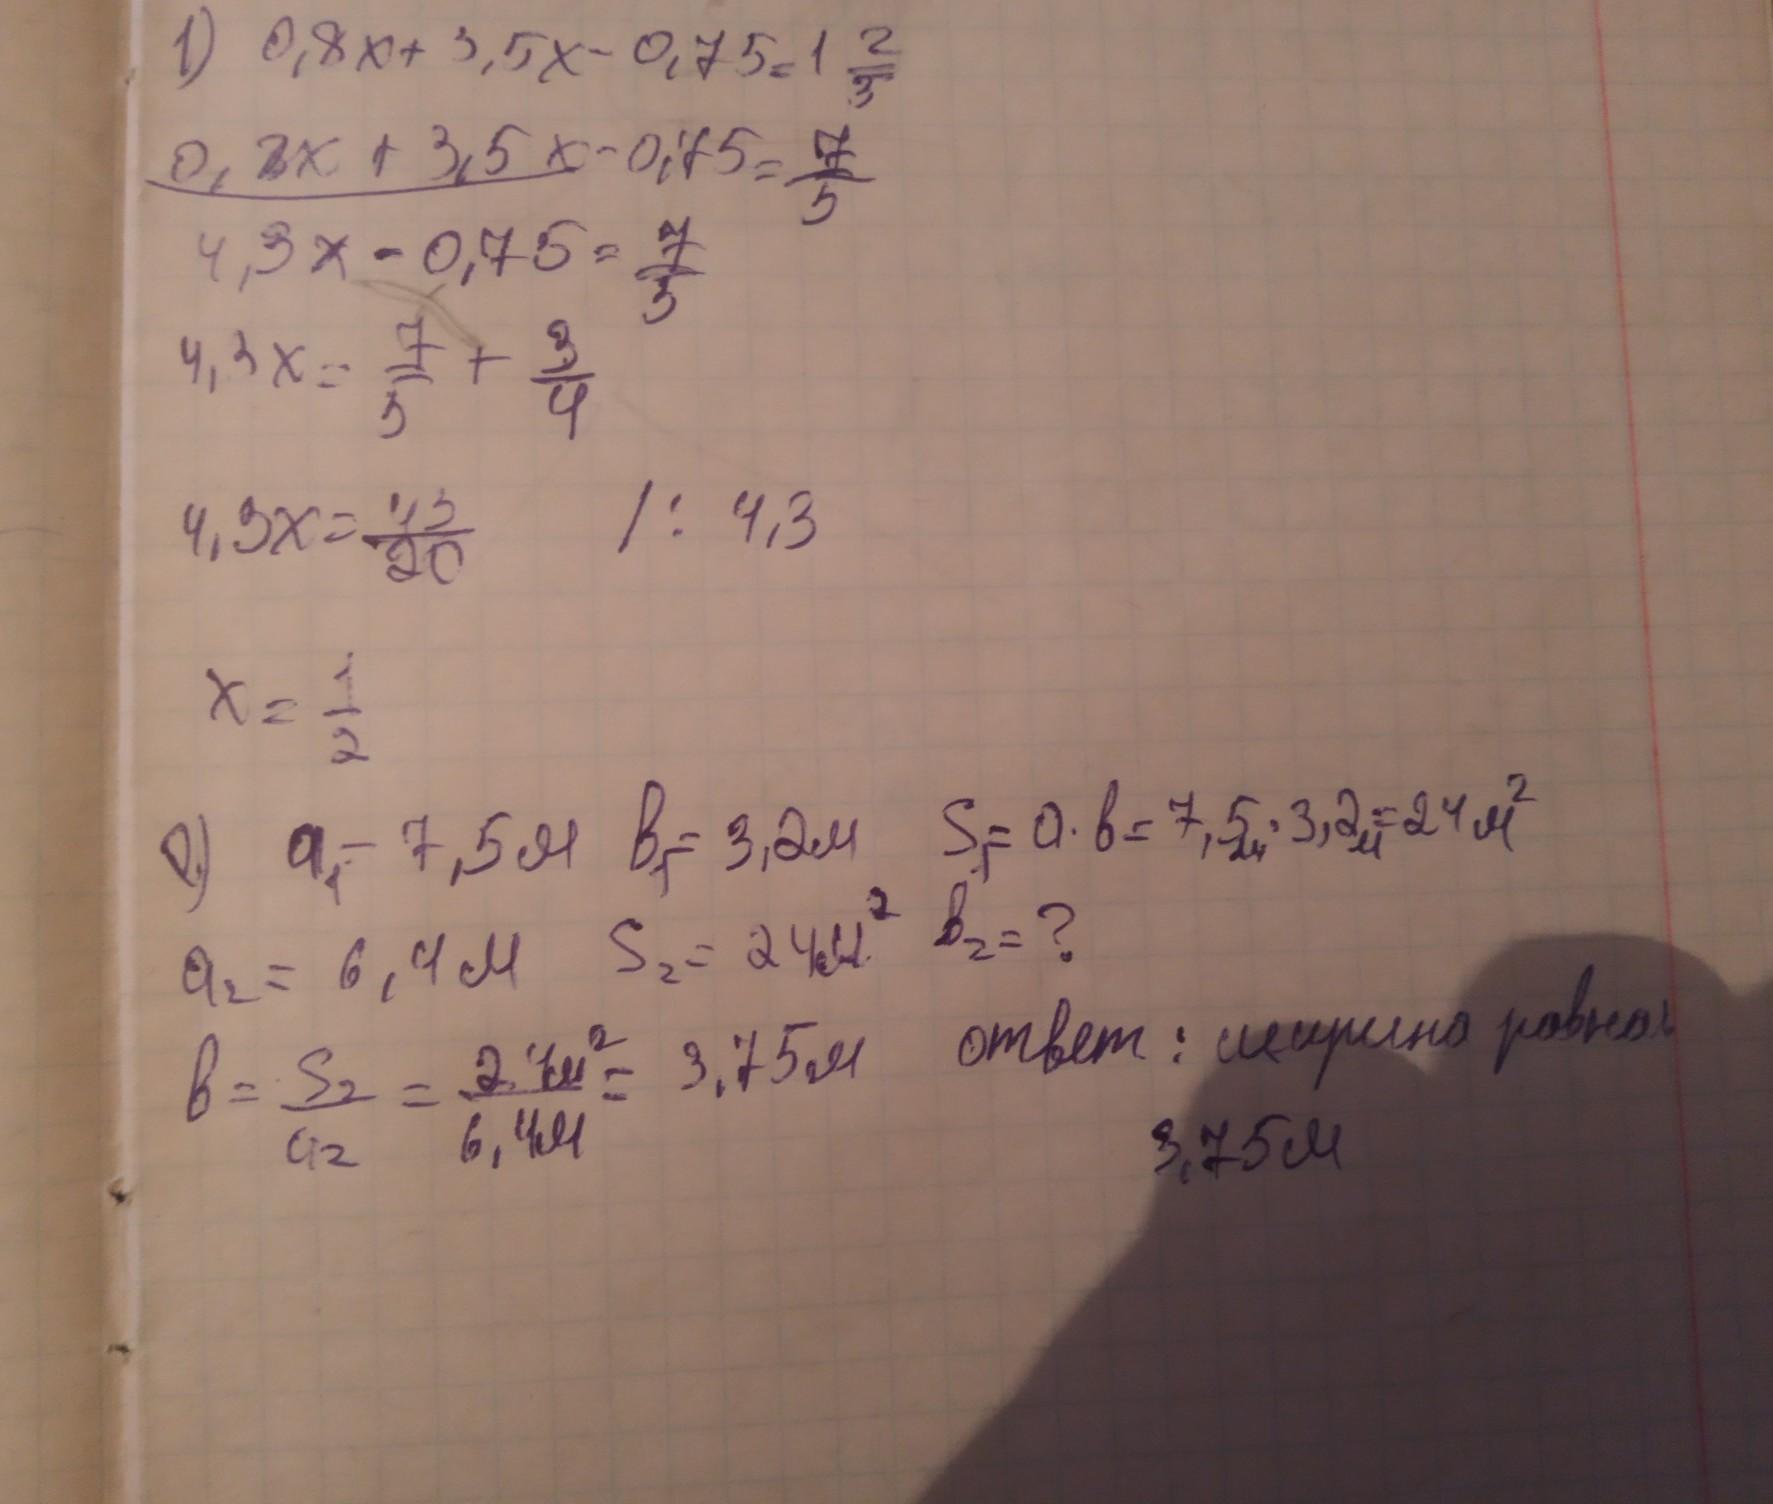 1) 0,8x + 3,5x - 0,75 = 1 2/5
0,8x + 3,5x - 0,75 = 7/5
4,3x - 0,75 = 7/5
4,3x = 7/5 + 3/4
4,3x = 43/20 /: 4,3
x = 1/2
2) a₁ = 7,5м b₁ = 3,2м S₁ = a · b = 7,5м · 3,2м = 24м²
a₂ = 6,4м S₂ = 24м² b₂ = ?
b = S₂/a₂ = 24м²/6,4м = 3,75м ответ : ширина равна
3,75м